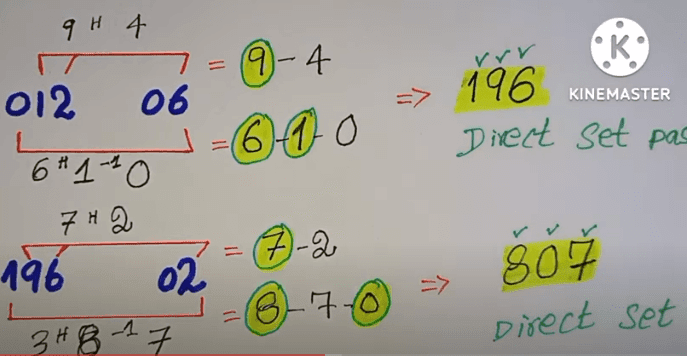 9 H 4
012 06 = 9-4
= 6-1-0
6 H 1 -1 0
=> 196
Direct Set pas
KINEMASTER
7 H 2
196 02 = 7-2
= 8-7-0
3 H 8 -1 7
=> 807
Direct Set